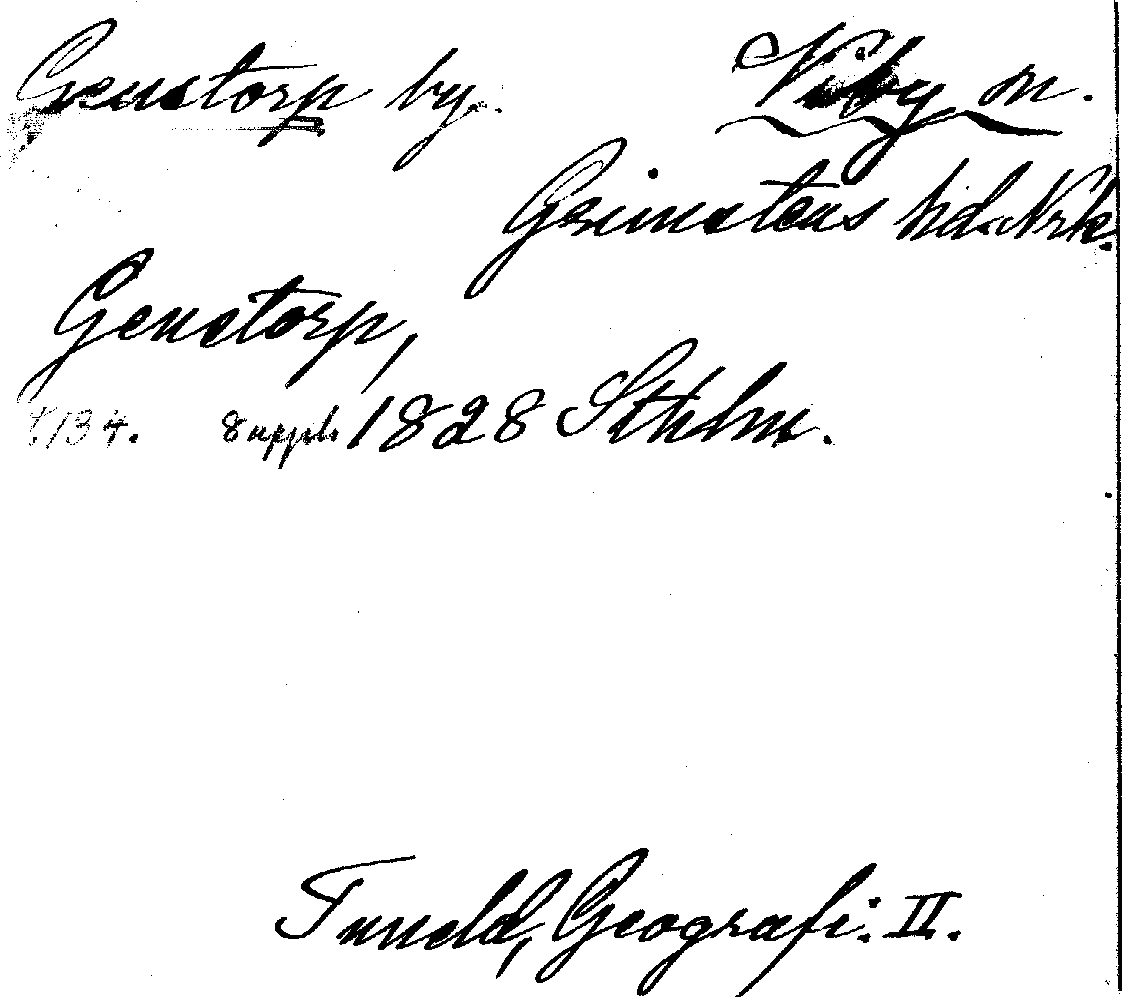 Genstorp by. Viby sn.
Grimstens hd. Nrk.
Genstorp,
s. 134. Suppl. 1828 Sthlm.
Tuneld, Geografi. II.